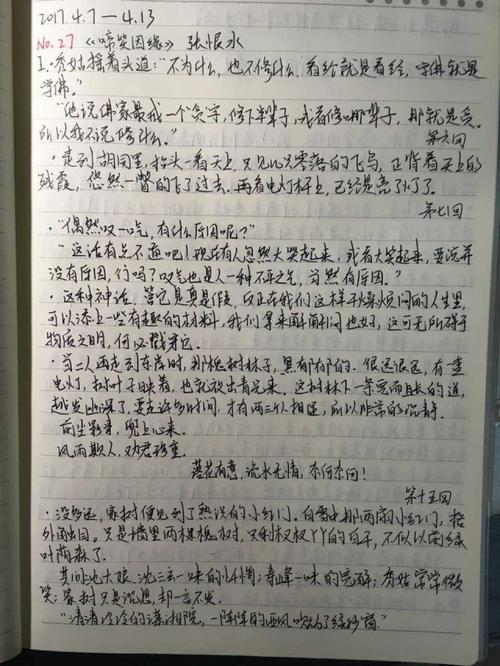 2017.4.7—4.13
No.27 《啼笑因缘》 张恨水
1.秀姑摇着头道:"不为什么,也不修什么,看经就是看经,学佛就是
学佛。"
"他说佛家最戒一个贪字,修下半辈子,或者修哪辈子,那就是贪。
所以我不说修什么。"
第六回
·走到胡同里,抬头一看天上,只见几只零落的飞鸟,正背着天上的
残霞,悠然一瞥的飞了过去。再看电灯杆上,已经是亮了灯了。
第七回
·"偶然叹一口气,有什么原因呢?"
"这话有点不通吧!现在有人忽然大哭起来,或者大笑起来,要说并
没有原因,行吗?叹气也是人一种不平之气,当然有原因。"
·这种神话,管它是真是假,反正在我们这样干燥烦闷的人生里,
可以添上一些有趣的材料,我们拿来解解闷也好,这可无所碍于
物质文明,何必戳穿它。
·当二人再走到东岸时,那槐树林子,黑郁郁的。很远很远,有一盏
电灯,树叶子映着,也就放出青光来。这树林下一条宽而且长的道,
越发幽深了,要走许多时间,才有两三个人相遇,所以非常的沉静。
前尘影事,兜上心来。
风雨欺人,劝君珍重。
落花有意,流水无情,奈何奈何!
第十五回
·没多远,家树便见到了熟识的小红门。白雪中那两扇小红门,格
外触目。只是墙里两棵槐树,只剩杈杈丫丫的白干,不似以前绿
叶荫森了。
其间沈大娘、沈三玄一味的 ;寿峰一味的 ;秀姑常常微
笑;家树只是沉思,却一言不发。
"清清冷冷的潇湘院,一阵阵的西风吹动了绿纱窗。"